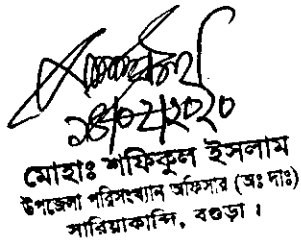 ১৪/০২/২০২০
মোহাঃ শফিকুল ইসলাম
উপজেলা পরিসংখ্যান অফিসার (অঃ দাঃ)
সারিয়াকান্দি, বগুড়া ।